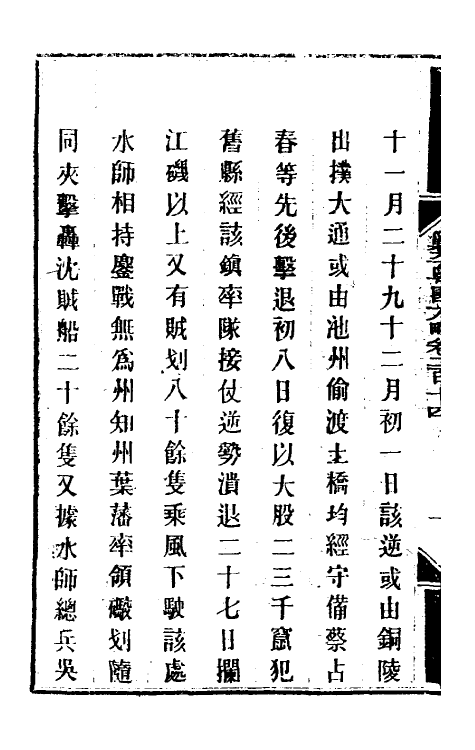 十一月二十九十二月初一日該逆或由銅陵
出撲大通或由池州偷渡土橋均經守備蔡占
春等先後擊退初八日復以大股二三千竄犯
舊縣經該鎮率隊接仗逆勢潰退二十七日攔
江磯以上又有賊划八十餘隻乘風下駛該處
水師相持鏖戰無為州知州葉藩率領礮划隨
同夾擊轟沈賊船二十餘隻又據水師總兵吳